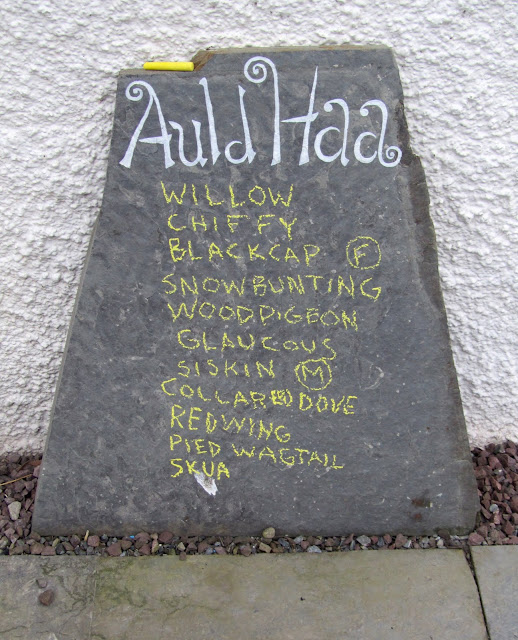 Auld Haa
WILLOW
CHIFFY
BLACKCAP F
SNOWBUNTING
WOODPIGEON
GLAUCOUS
SISKIN M
COLLARED DOVE
REDWING
PIED WAGTAIL
SKUA